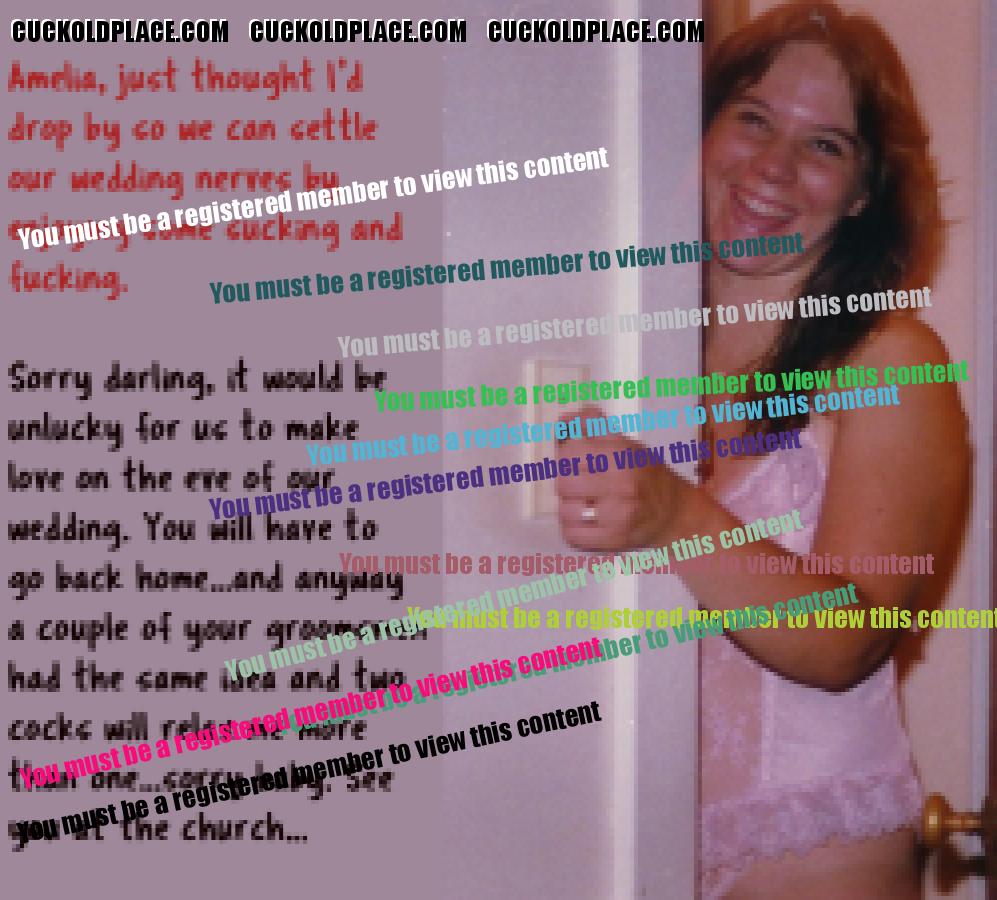 CUCKOLDPLACE.COM CUCKOLDPLACE.COM CUCKOLDPLACE.COM
Amelia, just thought I'd
drop by so we can settle
our wedding nerves by
enjoying some sucking and
fucking.
Sorry darling, it would be
unlucky for us to make
love on the eve of our
wedding. You will have to
go back home...and anyway
a couple of your groomsmen
had the same idea and two
cocks will relax me more
than one...sorry baby. See
you at the church...
You must be a registered member to view this content
You must be a registered member to view this content
You must be a registered member to view this content
You must be a registered member to view this content
You must be a registered member to view this content
You must be a registered member to view this content
You must be a registered member to view this content
You must be a registered member to view this content
You must be a registered member to view this content
You must be a registered member to view this content
You must be a registered member to view this content
You must be a registered member to view this content